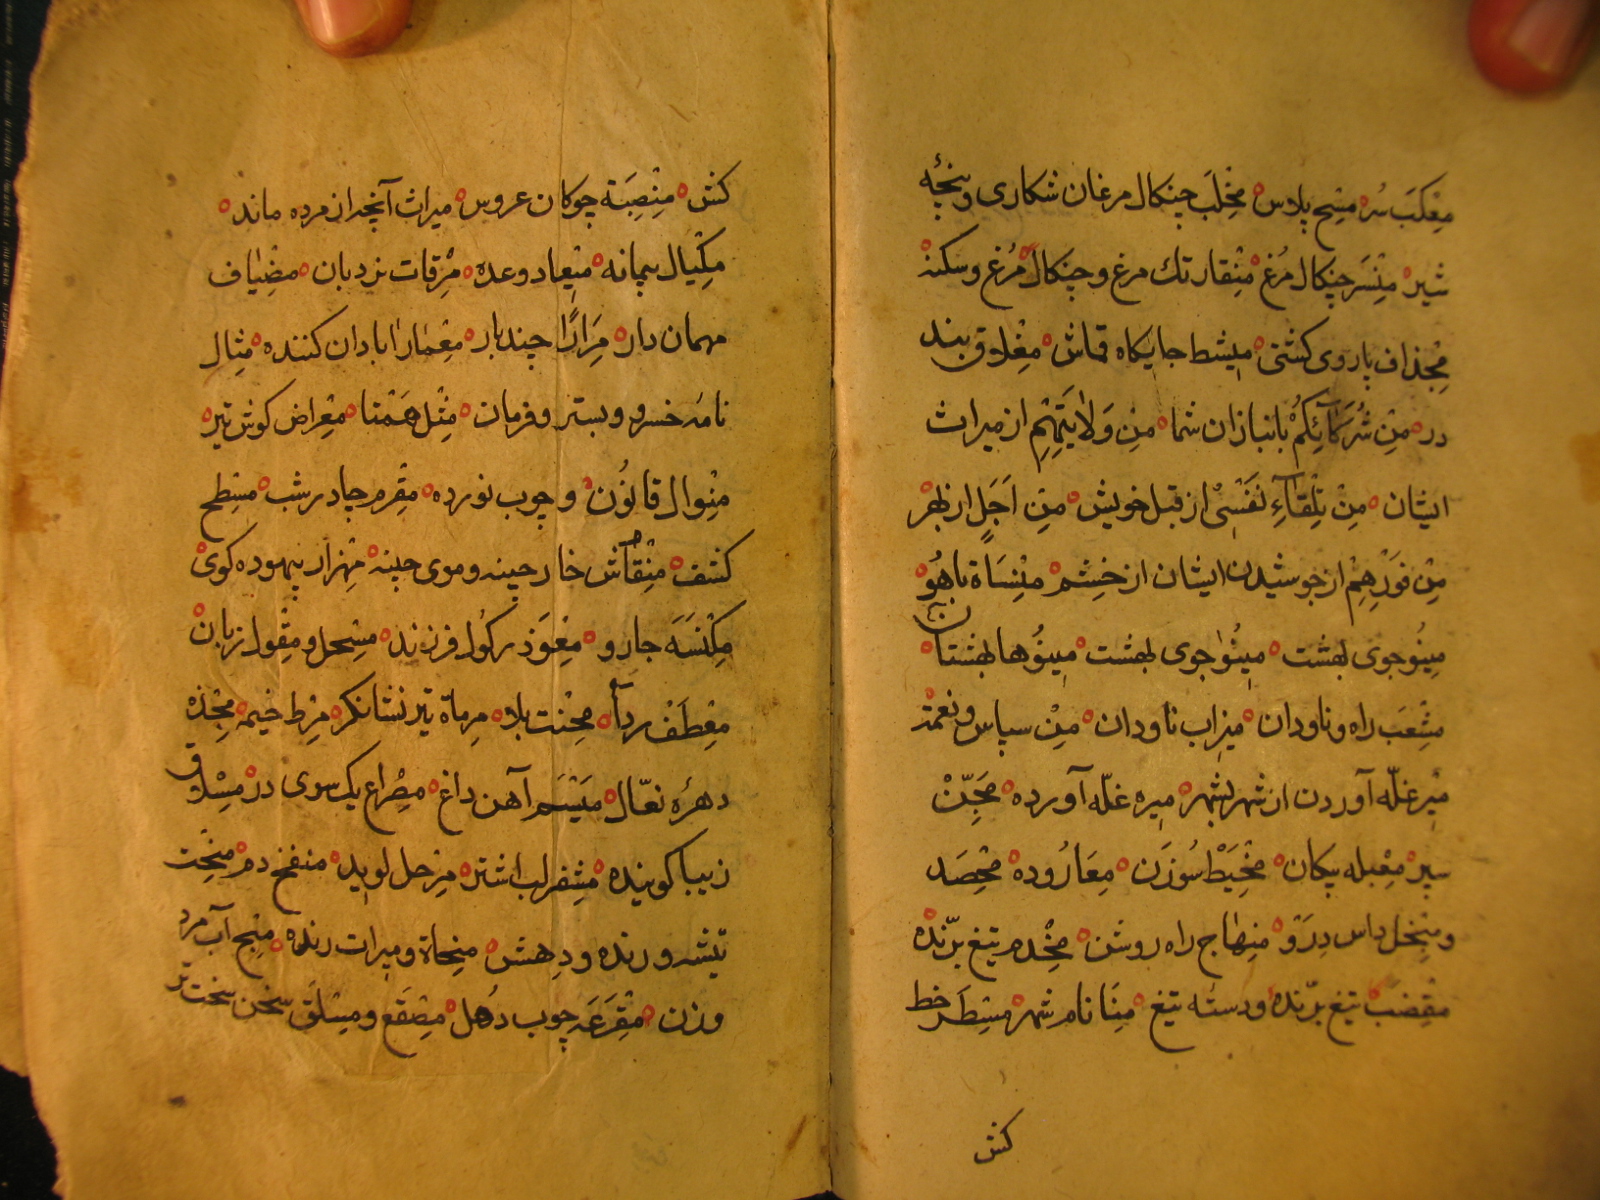 مِعْکَب سُرْه مِسْح پلاس مِخْلَب چنکال مرغان شکاری و پنجهٔ
شیر مِنْسَر چنکال مُرغ مِنْقار تك مرغ و چنکال مُرغ و سکنه
مِجْذاف پاروی کشتی مِیشط جایکاه قماش مِغْلاق بند
در مِنْ شُرَکَائِکُمْ بانبازان شما مِنْ وَلَایَتِهِمْ از میراث
ایشان مِنْ تِلْقَآءِ نَفْسِیْ از قبل خویش مِنْ اَجَلِ از بهر
مِنْ فَوْرِهِمْ از جوشیدن ایشان از خشم مِنْسَاة باهُو
مینُو جوی بهشت مینُو جوی بهشت مینُوها بهشتان
مِشْعَب راه و ناودان میزاب ناودان مِنْ سپاس و نعمة
مِیر غلّه آوردن از شهر بشهر مِیره غلّه آورده مِجَنّ
سپر مِعْبله پیکان مِخْیَطْ سُوزَن مِعَا رُوده مِحْصَد
و مِنْجَل داس دِرَوْ مِنْهاج راه روشن مِخْذم تیغ برّنده
مِقْضَب تیغ برّنده و دسته تیغ مِنَا نام شهر مِسْطَر خط
کش
کش مِنْصَبَة چوکان عروس میراث آنچه از مرده ماند
مِکْیال پیمانه مِیْعاد وعده مِرْقات نردبان مِضْیاف
مهمان دار مِرَارًا چندبار مِعْمار ابادان کننده مِثال
نامه خسرو و بستر و فرمان مِثْل هَمْتا مِعْراض کوش تیر
مِنْوال قانُون و چوب نورده مِقْرم چادر شب مِسْطح
کشف مِنْقاش خار چینه و موی چینه مِهْزار بیهوده کوی
مِکْنَسَه جارو مِعْوَذ رکول فرزند مِسْحل و مِقْول زبان
مِعْطَفْ ردآ مِحْنت بلا مِرماة تیر نشانکر مِرْط خیمه مِجْذه
دهرهٔ نعّال مِیْسَم آهن داغ مِصْراع یک سوی در مِسْلاق
زیبا کوینده مِشْفر لب اشتر مِرْحل لوید منفخ دم مِنْحت
تیشه و رنده و دِهِش مِنْحاة و مِبرات رنده مِنْح آب مرد
وزن مِقْرَعَه چوب دُهل مِصْقَع و مِسْلَق سخن سخت بر